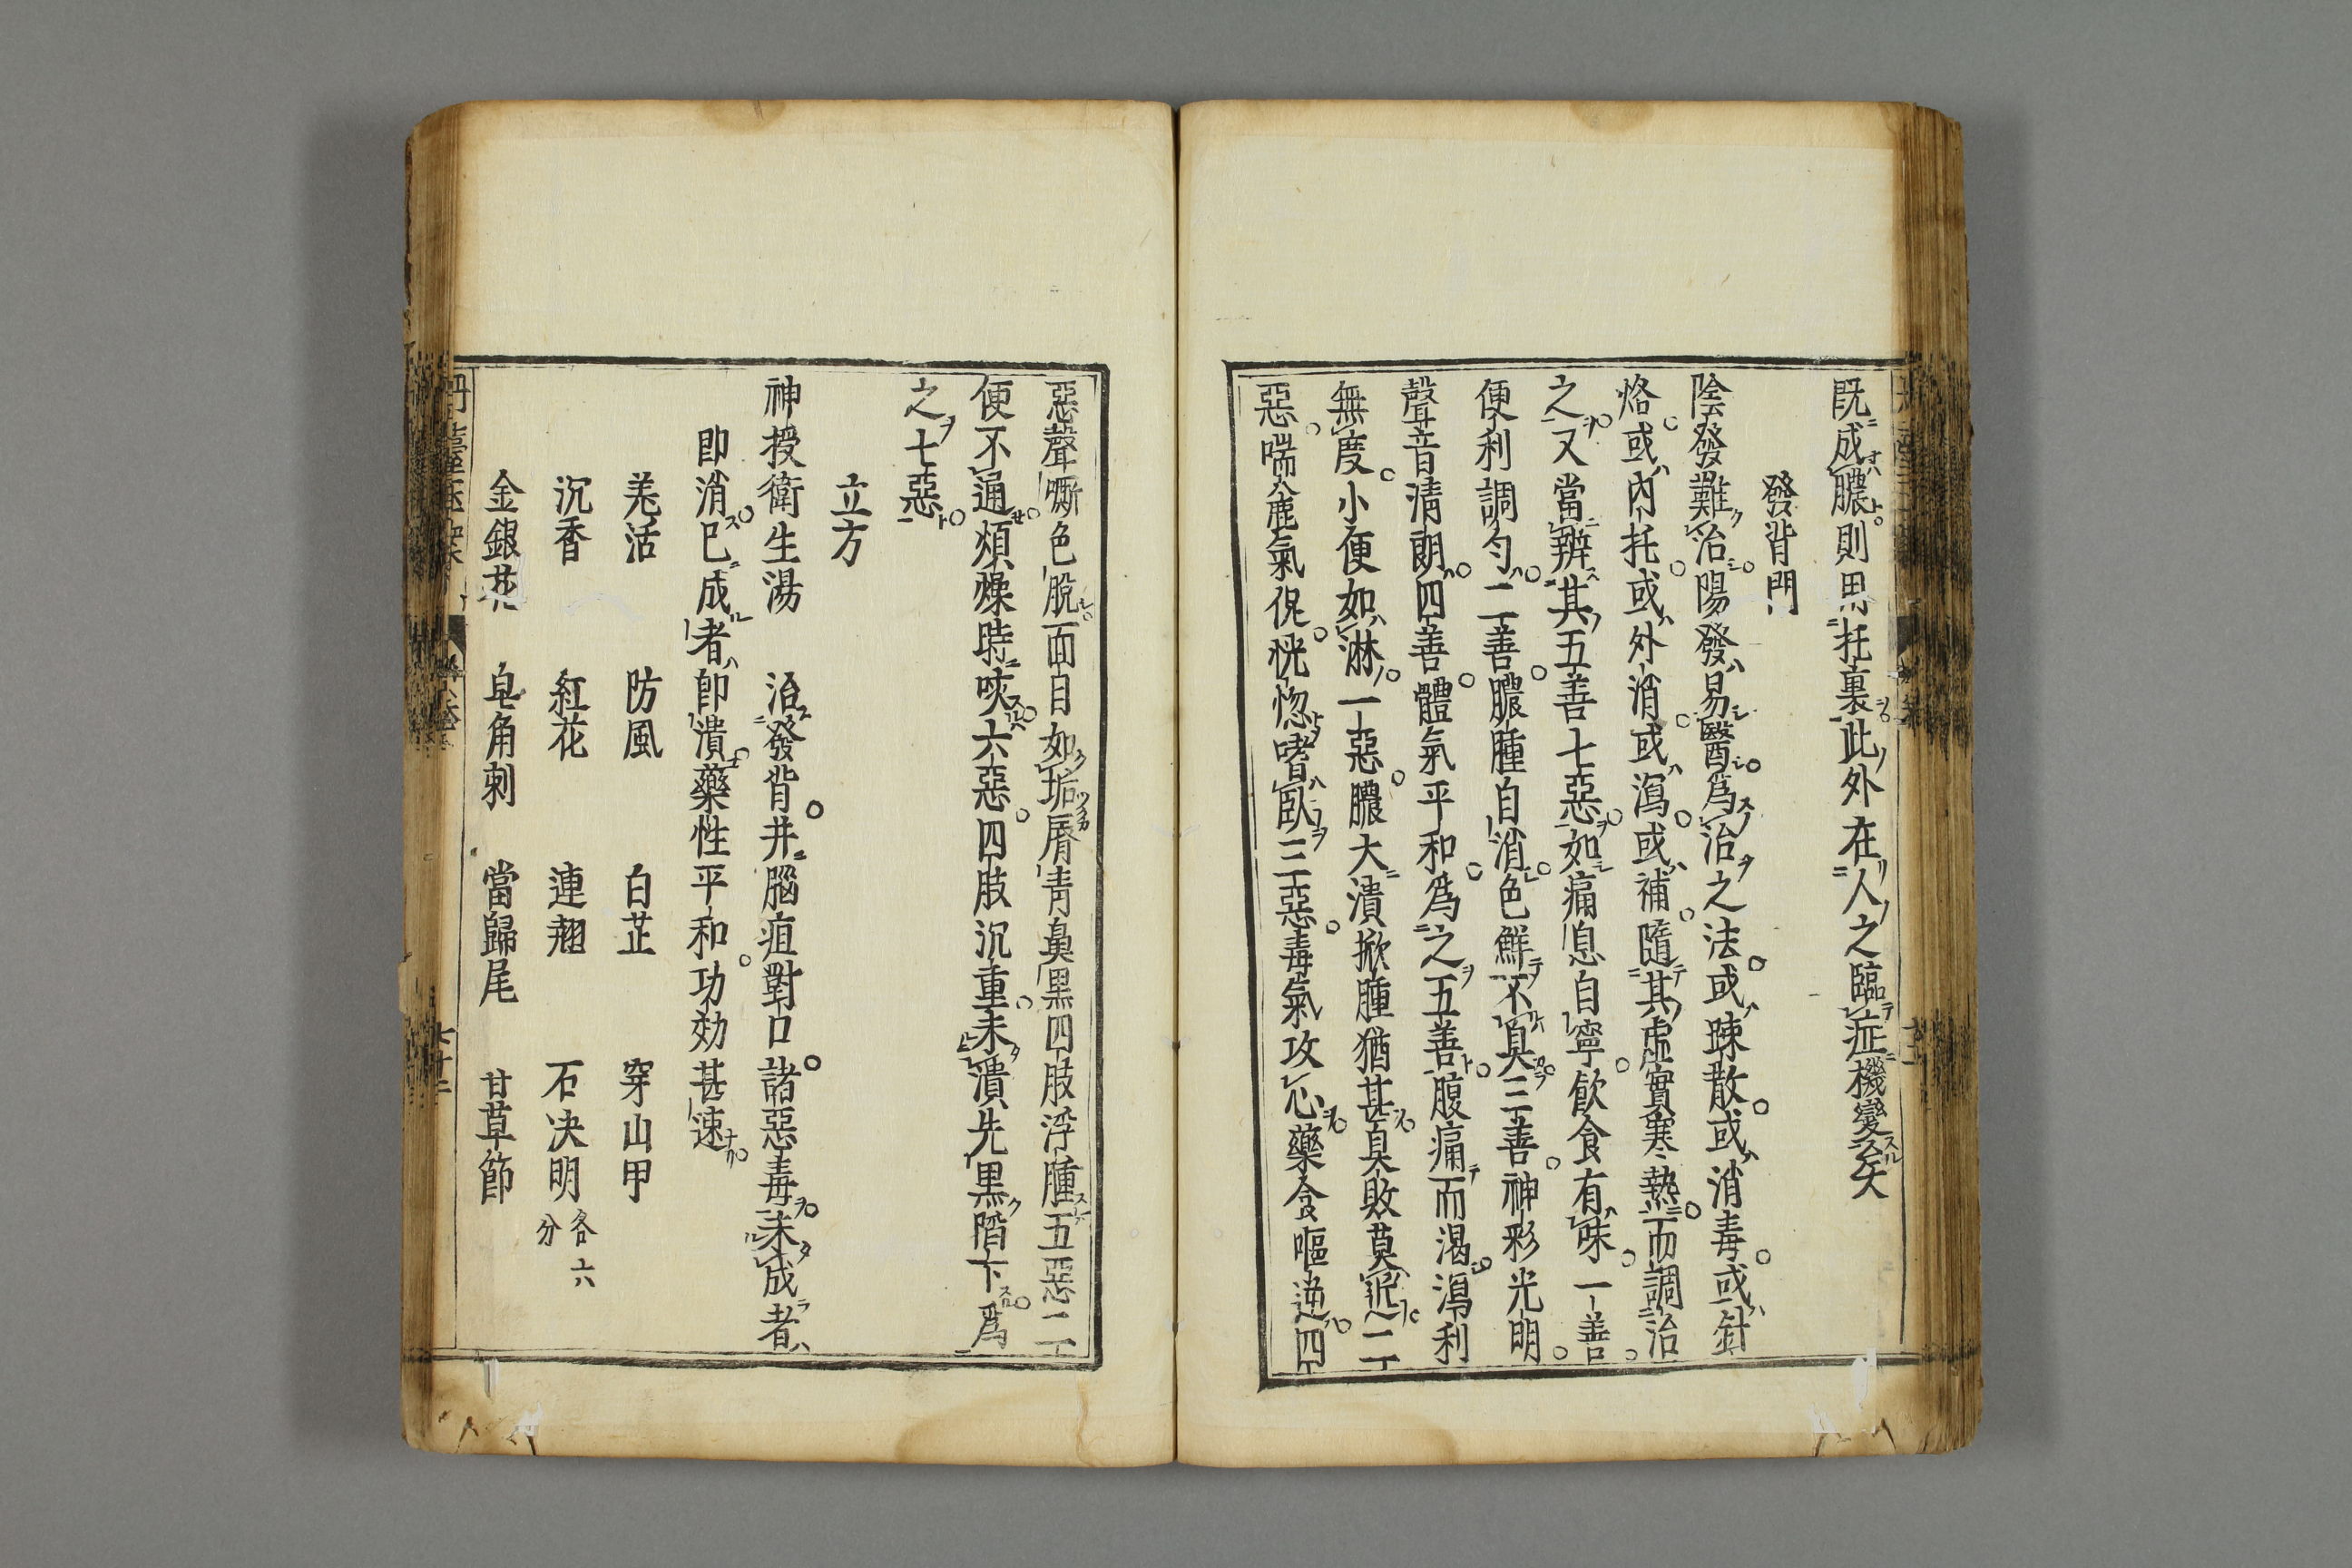 既成膿則用托裏此外在人之臨症機變矣
發背門
陰發難治陽發易醫爲治之法或踈散或消毒或針
烙或內托或外消或瀉或補隨其虛實寒熱而調治
之又當辨其五善七惡如痛息自寧飲食有味一善
便利調匀二善膿腫自消色鮮不臭三善神彩光明
聲音清朗四善體氣平和爲之五善腹痛而渴瀉利
無度小便如淋一惡膿大潰掀腫猶甚臭敗莫近二
惡喘麄氣促恍惚嗜臥三惡毒氣攻心藥食嘔逆四
惡聲嘶色脫面目如垢唇青鼻黑四肢浮腫五惡二
便不通煩燥時咳六惡四肢沉重未潰先黑陷下爲
之七惡
立方
神授衛生湯 治發背并腦疽對口諸惡毒未成者
即消已成者卽潰藥性平和功効甚速
羌活 防風 白芷 穿山甲
沉香 紅花 連翹 石決明各六分
金銀花 皂角刺 當歸尾 甘草節